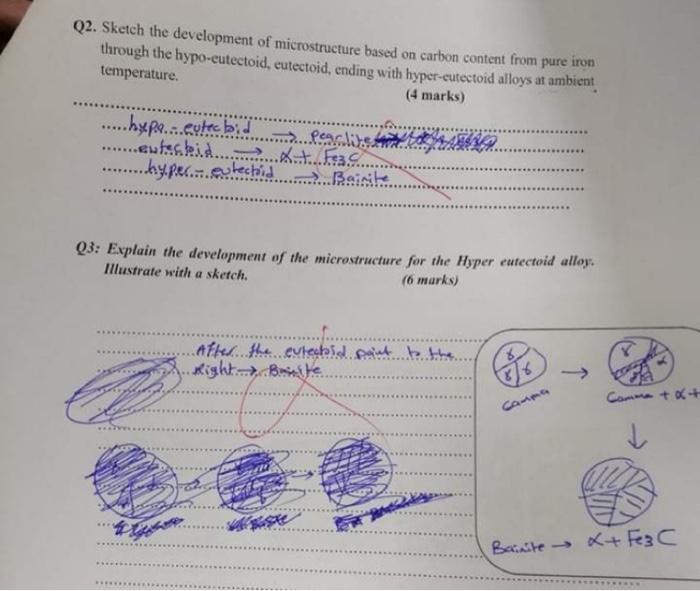 Q2. Sketch the development of microstructure based on carbon content from pure iron
through the hypo-eutectoid, eutectoid, ending with hyper-eutectoid alloys at ambient
temperature.
(4 marks)
hypo - eutectoid → Pearlite
eutectoid → α + Fe3C
hyper - eutectoid → Bainite
Q3: Explain the development of the microstructure for the Hyper eutectoid alloy.
Illustrate with a sketch. (6 marks)
After the eutectoid point to the
right → Bainite
γ γ γ
γ α
Gamma
Gamma + α +
Bainite → α + Fe3C